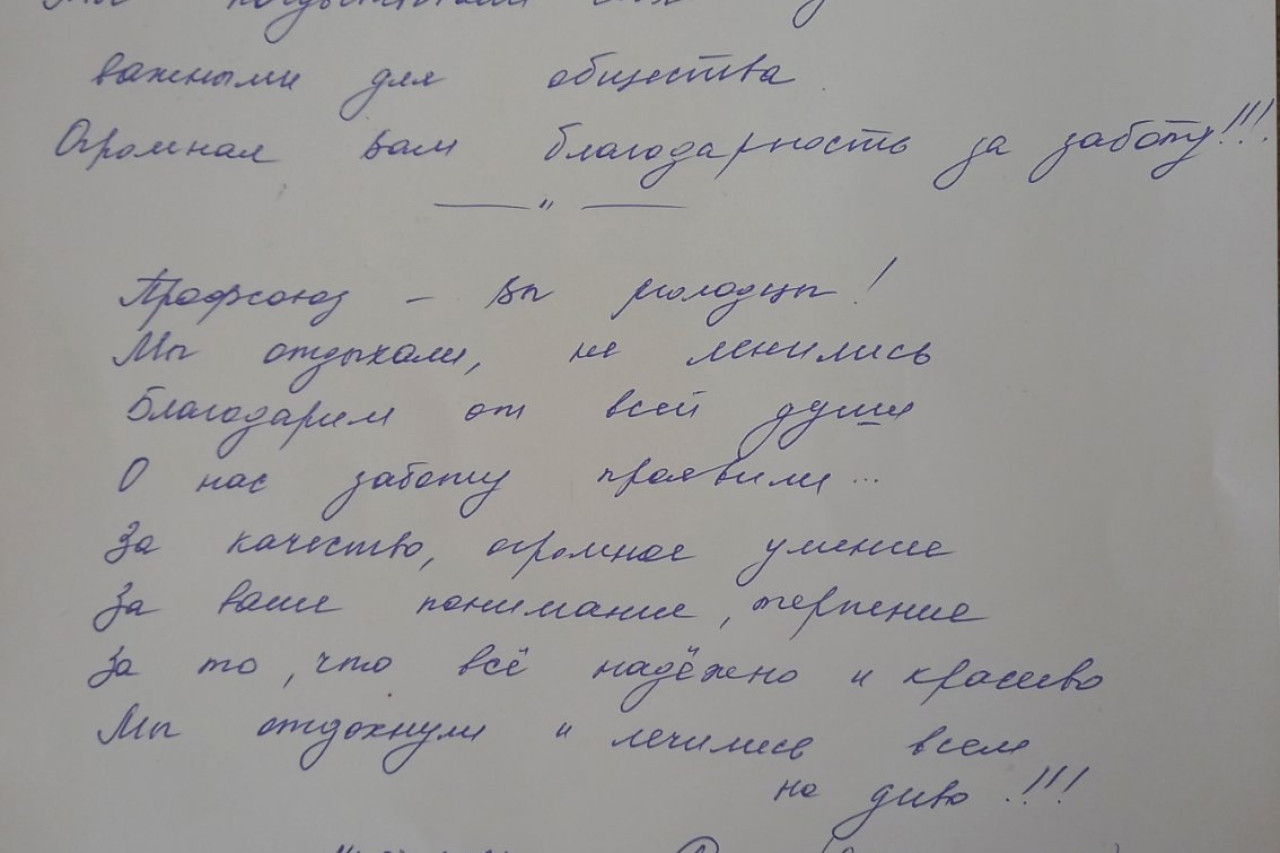 важными для общества
Огромная вам благодарность за заботу!!!
— " —
Профсоюз – вы молодцы!
Мы отдыхали, не ленились
Благодарим от всей души
О нас заботу проявили...
За качество, огромное умение
За ваше понимание, терпение
За то, что всё надёжно и красиво
Мы отдохнули и лечились всем
на диво!!!